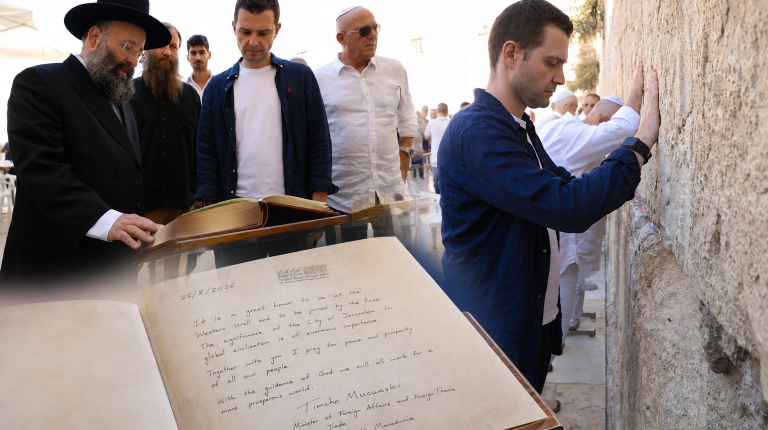 25/8/2026
It is a great honor to be at the
Western Wall and to be joined by the Rabbi
The significance of the City of Jerusalem for
global civilisation is of enormous importance
Together with you I pray for peace and prosperity
of all our people.
With the guidance of God we will all work for a
more prosperous world.
Timcho Mucunski
Minister of Foreign Affairs and Foreign Trade
Trade
Macedonia